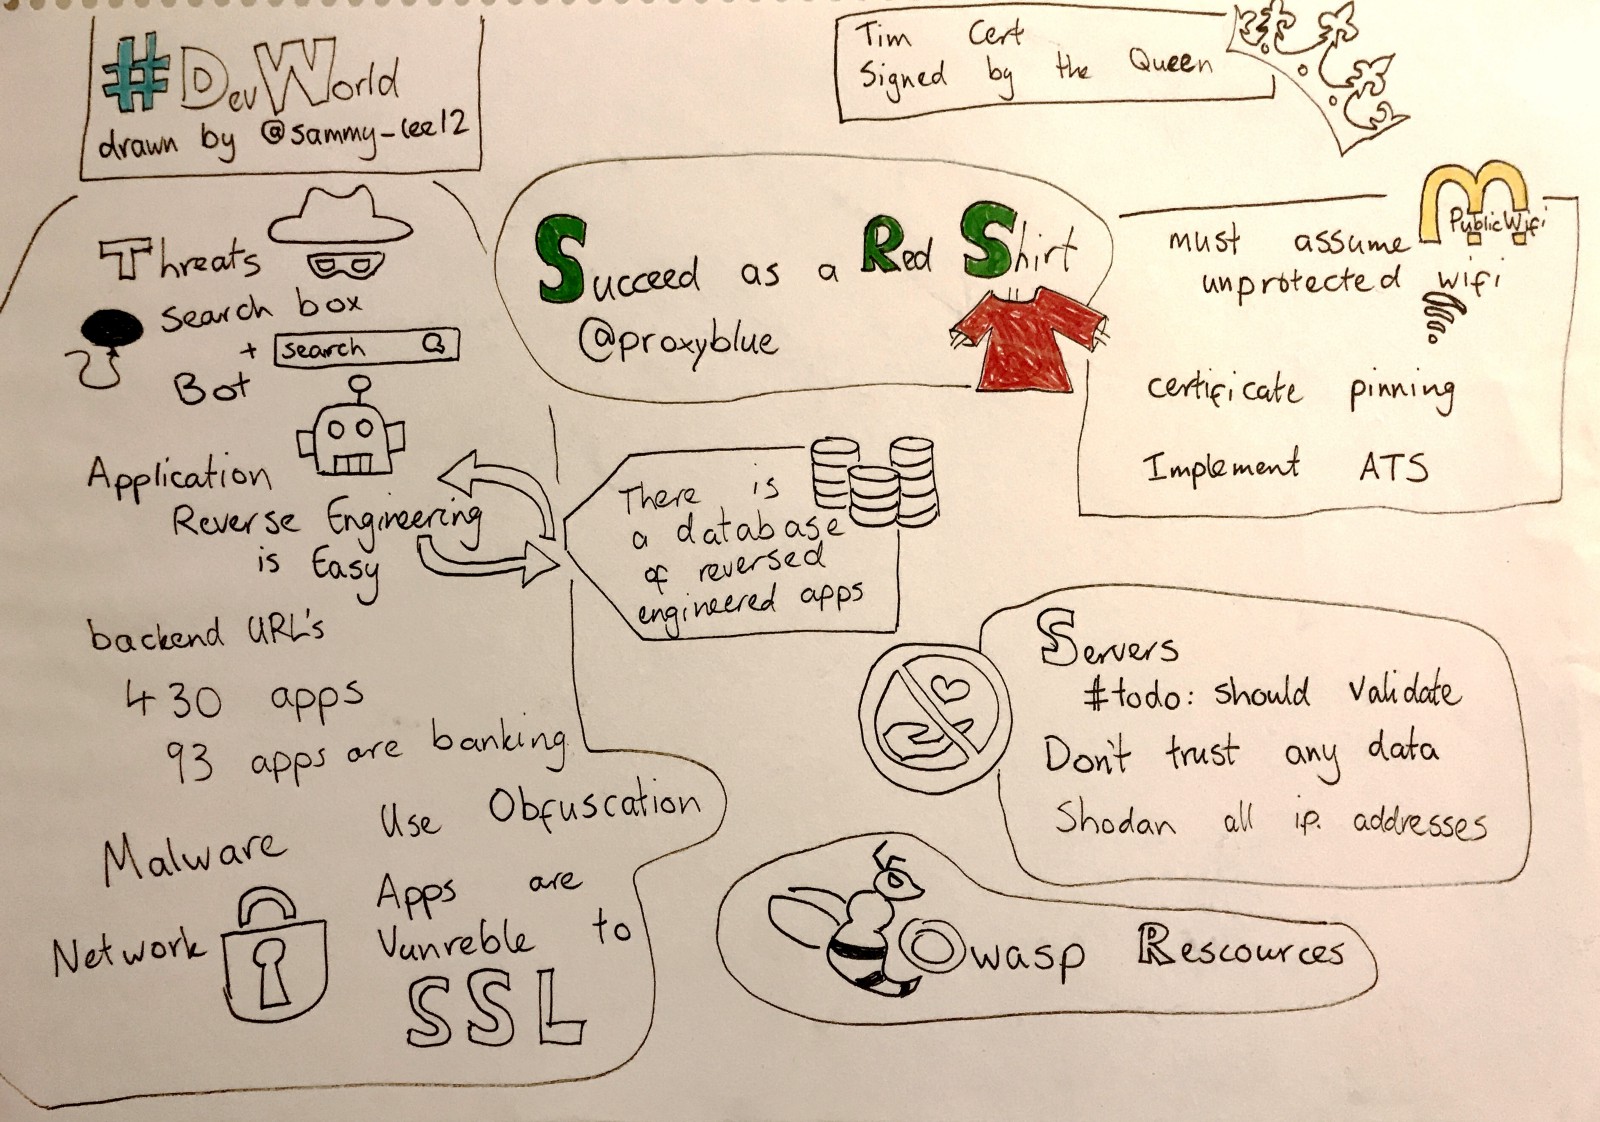 #DevWorld
drawn by @sammy_lee12
Tim Cert
Signed by the Queen
Succeed as a Red Shirt
@proxyblue
Threats
search box
+ search
Bot
Application
Reverse Engineering
is Easy
backend URL's
430 apps
93 apps are banking
Use Obfuscation
Malware
Apps are
Vunreble to
SSL
Network
There is
a database
of reversed
engineered apps
Public Wifi
must assume
unprotected wifi
certificate pinning
Implement ATS
Servers
#todo: should validate
Don't trust any data
Shodan all i.p. addresses
Owasp Rescources